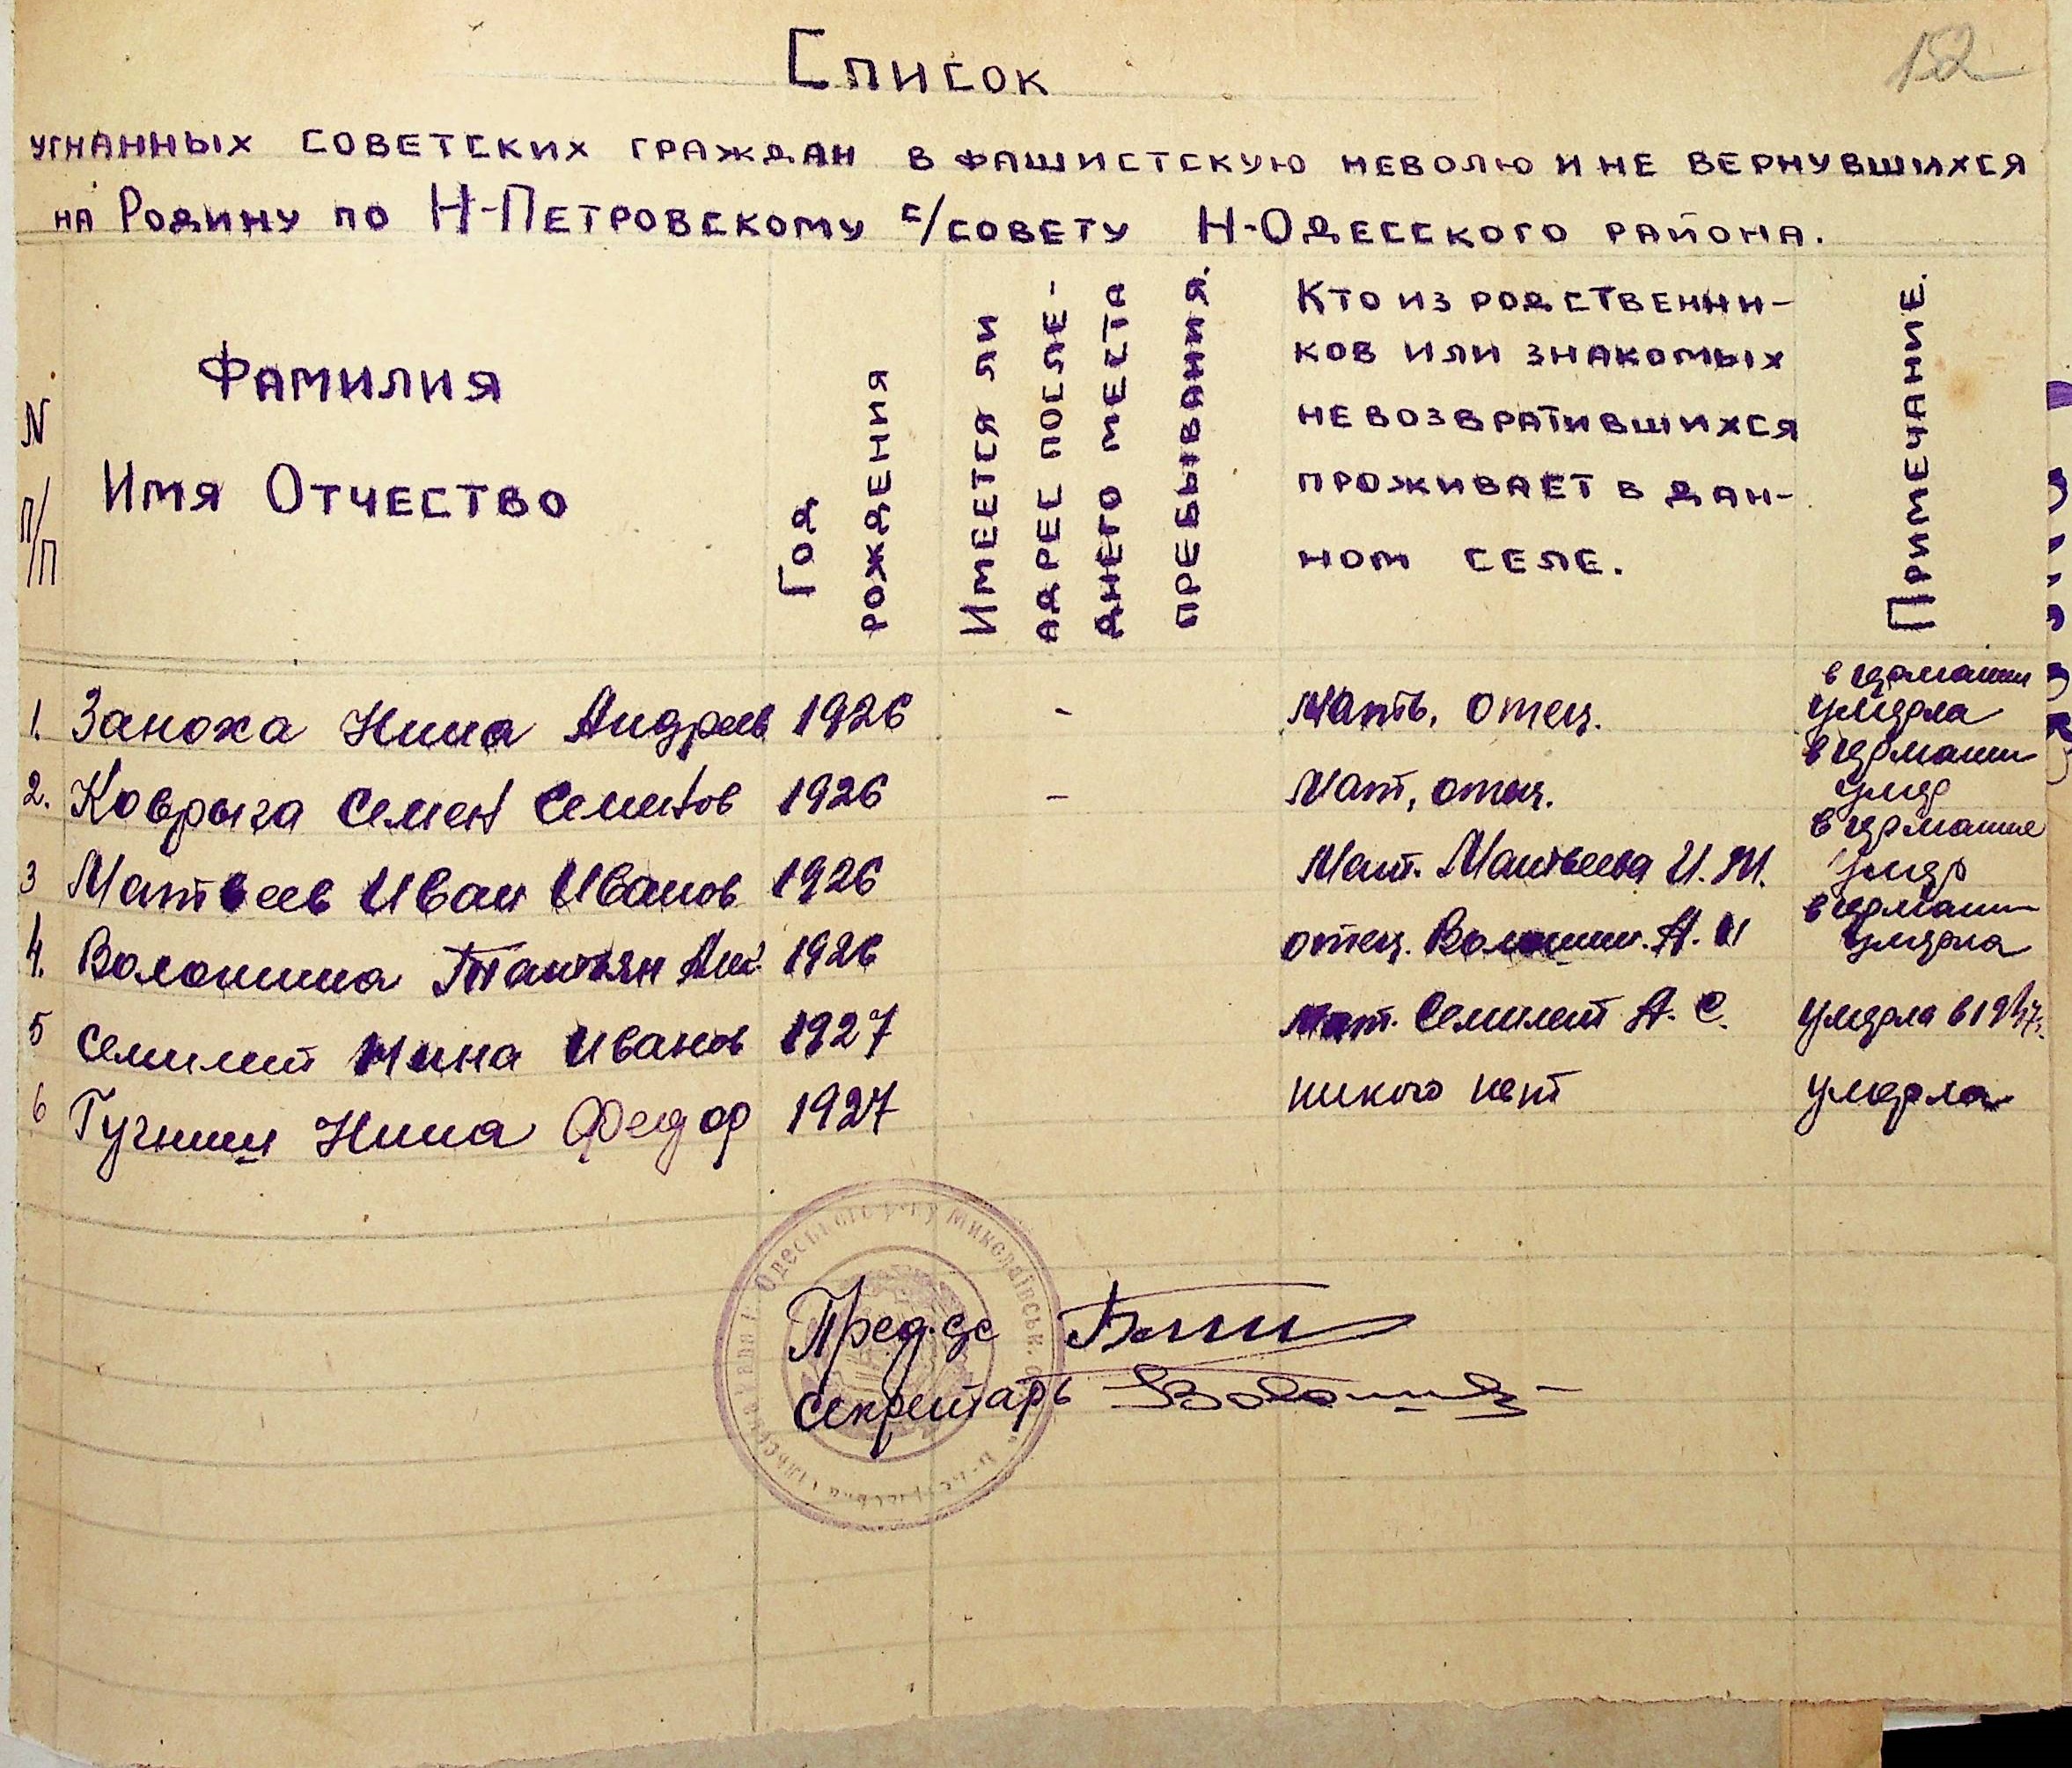 12
Список
угнанных советских граждан в фашистскую неволю и не вернувшихся
на Родину по Н-Петровскому с/совету Н-Одесского района.
N п/п
Фамилия
Имя Отчество
Год рождения
Имеется ли адрес последнего места пребывания.
Кто из родственни-
ков или знакомых
невозвратившихся
проживает в дан-
ном селе.
Примечание.
1. Заноха Нина Андреев 1926 - Мать, отец. в германии умерла
2. Коврыга Семен Семенов 1926 - Мат, отец. в германии умер
3 Матвеев Иван Иванов 1926 Мат. Матвеева И.М. в германие умер
4. Волошина Татьян 1926 отец. Волошин. А. И в германии умерла
5 Семилит Нина Иванов 1927 Мат. Семилет А. С. умерла в 1947г.
6 Нина Федор 1927 никого нет умерла
Пред. с/с
секретарь